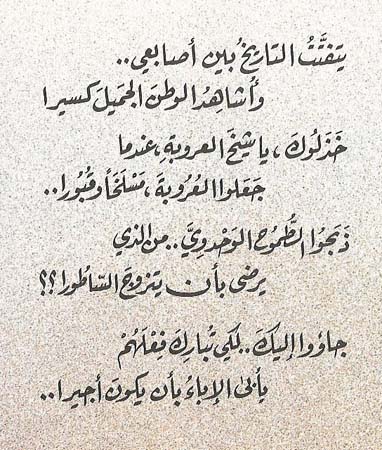 يتفتَّتُ التاريخُ بين أصابعي..
وأشاهِدُ الوطنَ الجميلَ كسيرا
خَذَلُوكَ، يا شيخَ العروبةِ، عندما
جَعَلوا العُرُوبَةَ، مَسْلَخاً وقُبُورا..
ذَبَحُوا الطُّموحَ الوَحْدويَّ.. من الذي
يرضى بأن يتزوجَ السَّاطُورا؟؟
جاؤوا إليكَ.. لكي تُبارِكَ فِعْلَهُمْ
يأبى الإباءُ بأن يكونَ أجيرا..